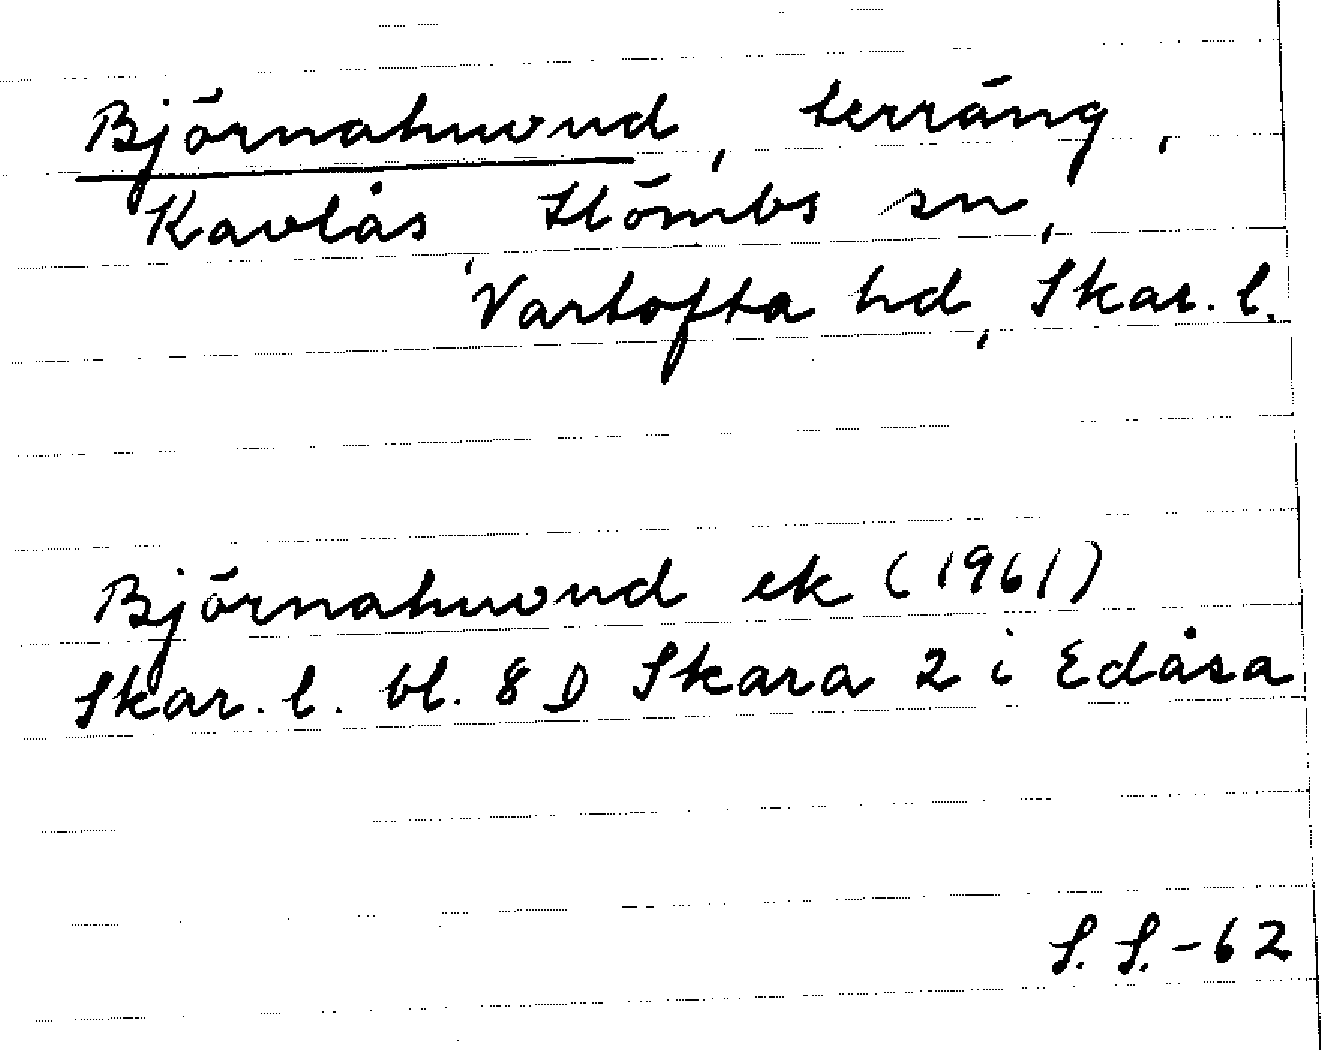 Björnahuvud, terräng,
Kavlås, Slömbs sn,
Vartofta hd, Skar. l.
Björnahuvud ek (1961)
Skar. l. bl. 8 D Skara 2 i Edåsa
S. S. - 62